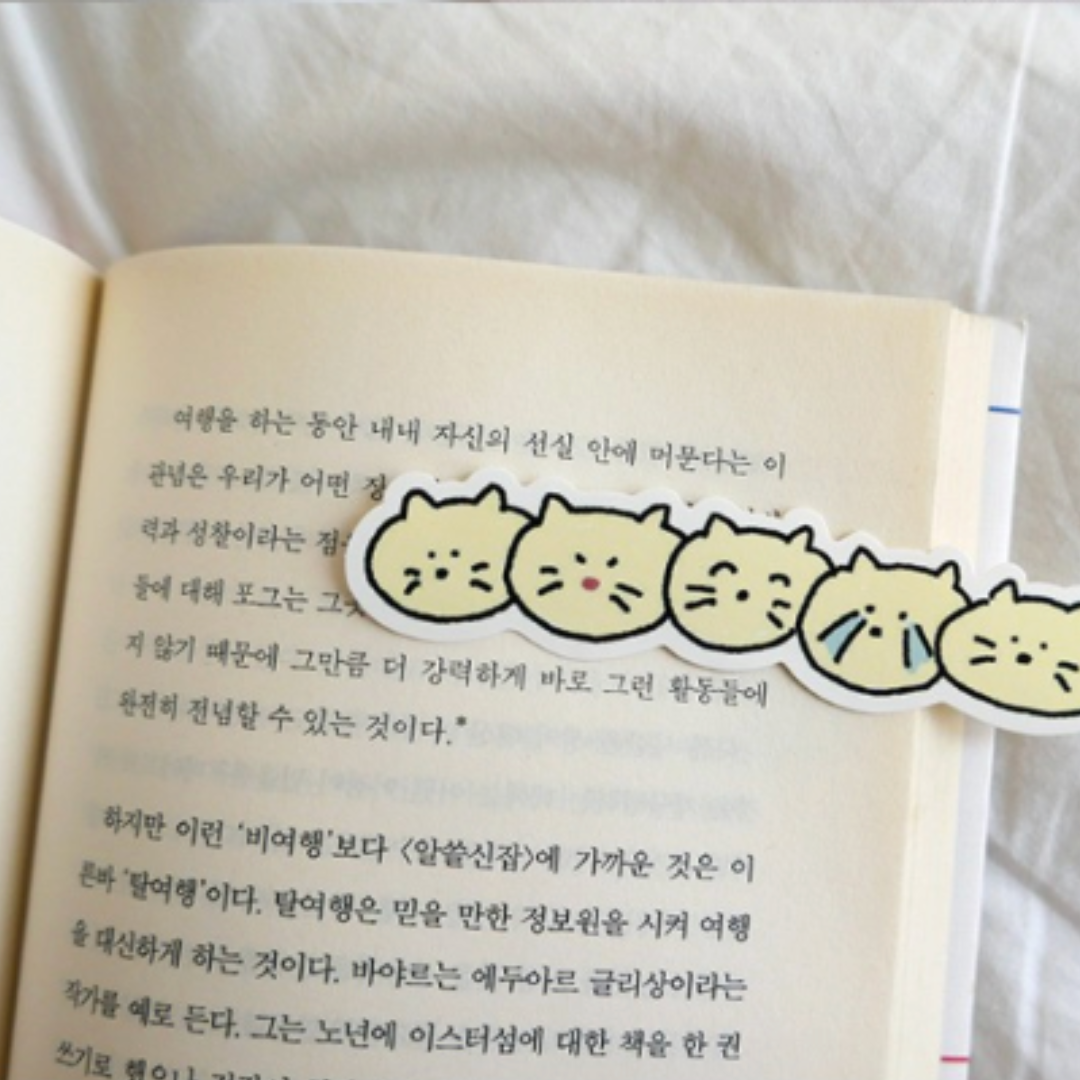 여행을 하는 동안 내내 자신의 선실 안에 머문다는 이
관념은 우리가 어떤 장
력과 성찰이라는 점
들에 대해 포그는 그
지 않기 때문에 그만큼 더 강력하게 바로 그런 활동들에
완전히 전념할 수 있는 것이다.*
하지만 이런 ‘비여행’보다 〈알쓸신잡〉에 가까운 것은 이
른바 ‘탈여행’이다. 탈여행은 믿을 만한 정보원을 시켜 여행
을 대신하게 하는 것이다. 바야르는 에두아르 글리상이라는
작가를 예로 든다. 그는 노년에 이스터섬에 대한 책을 한 권
쓰기로 했으나